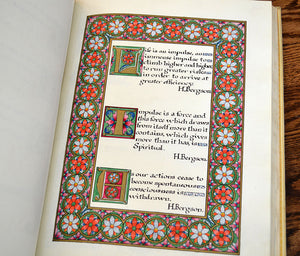 Life is an impulse, an
immense impulse to
climb higher and higher
to run greater risks
in order to arrive at
greater efficiency.
H.Bergson.
Impulse is a force and
this force which draws
from itself more than it
contains, which gives
more than it has, is
Spiritual.
H.Bergson.
As our actions cease to
become spontaneous
consciousness is
withdrawn.
H.Bergson.